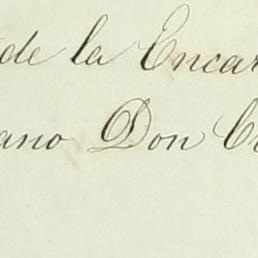 de la Encar
ano Don C